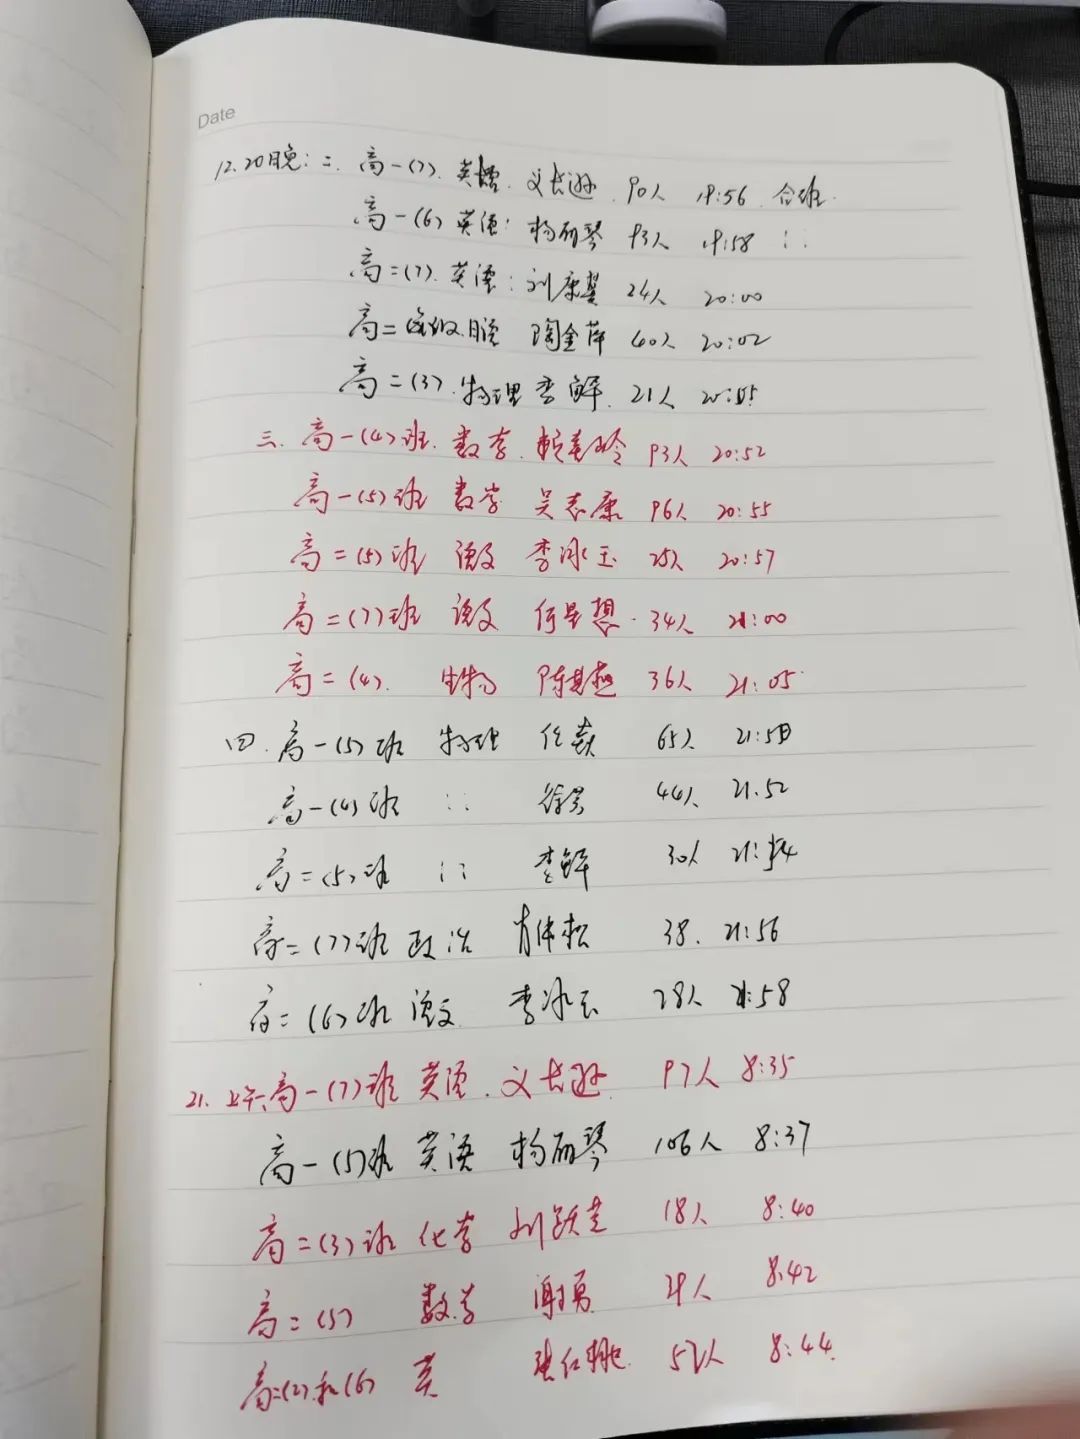 Date
12.20日晚:二. 高一(7). 英语. 文长逊. 90人 19:56. 合班.
高一(6) 英语: 杨丽琴 93人 19:58 ::
高二(7). 英语: 刘康 24人 20:00
高二 日语 陶金萍 40人 20:02
高二(3). 物理 李解. 21人 20:05
三. 高一(4)班. 数学. 93人 20:52
高一(5)班 数学 吴志康 96人 20:55
高二(5)班 语文 李冰玉 25人 20:57
高二(7)班 语文 何星想. 34人 21:00
高二(4). 生物 陈其 36人 21:05
四. 高一(5)班 物理 任 65人 21:50
高一(4)班 :: 徐 44人 21.52
高二(5)班 :: 李解 30人 21:54
高二(7)班 政治 肖体松 38. 21:56
高二(6)班 语文 李冰玉 28人 21:58
21. 上午.高一(7)班 英语. 文长逊. 97人 8:35
高一(5)班 英语 杨丽琴 106人 8:37
高二(3)班 化学 刘跃 18人 8:40
高二(5) 数学 谢勇 人 8:42
高二(2)和(6) 英 张红桃 52人 8:44